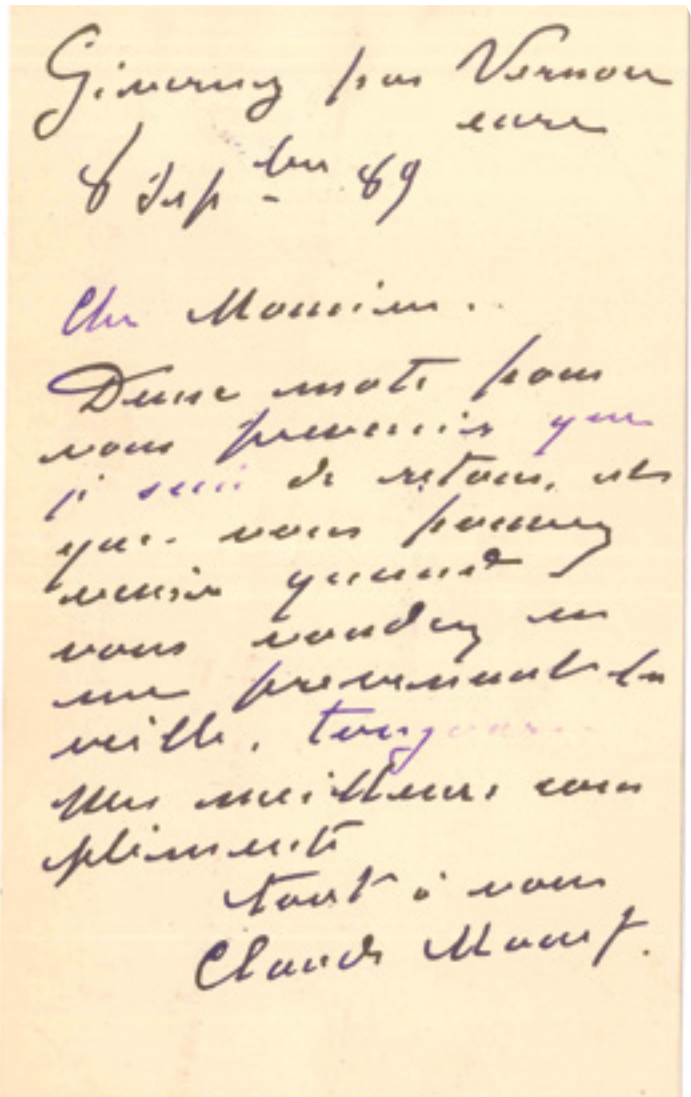 Giverny par Vernon
eure
8 Sept bre 89
Cher Monsieur.
Deux mots pour
vous prevenir que
je suis de retour, et
que vous pouvez
venir quand
vous voudrez en
me prevenant la
veille. toujours
Mes meilleurs com
pliments
tout à vous
Claude Monet.